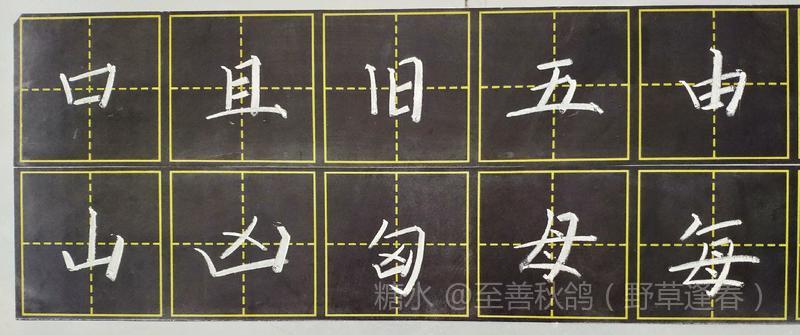 口且旧五由
山凶匈母每
糖水 @至善秋鸽（野草逢春）